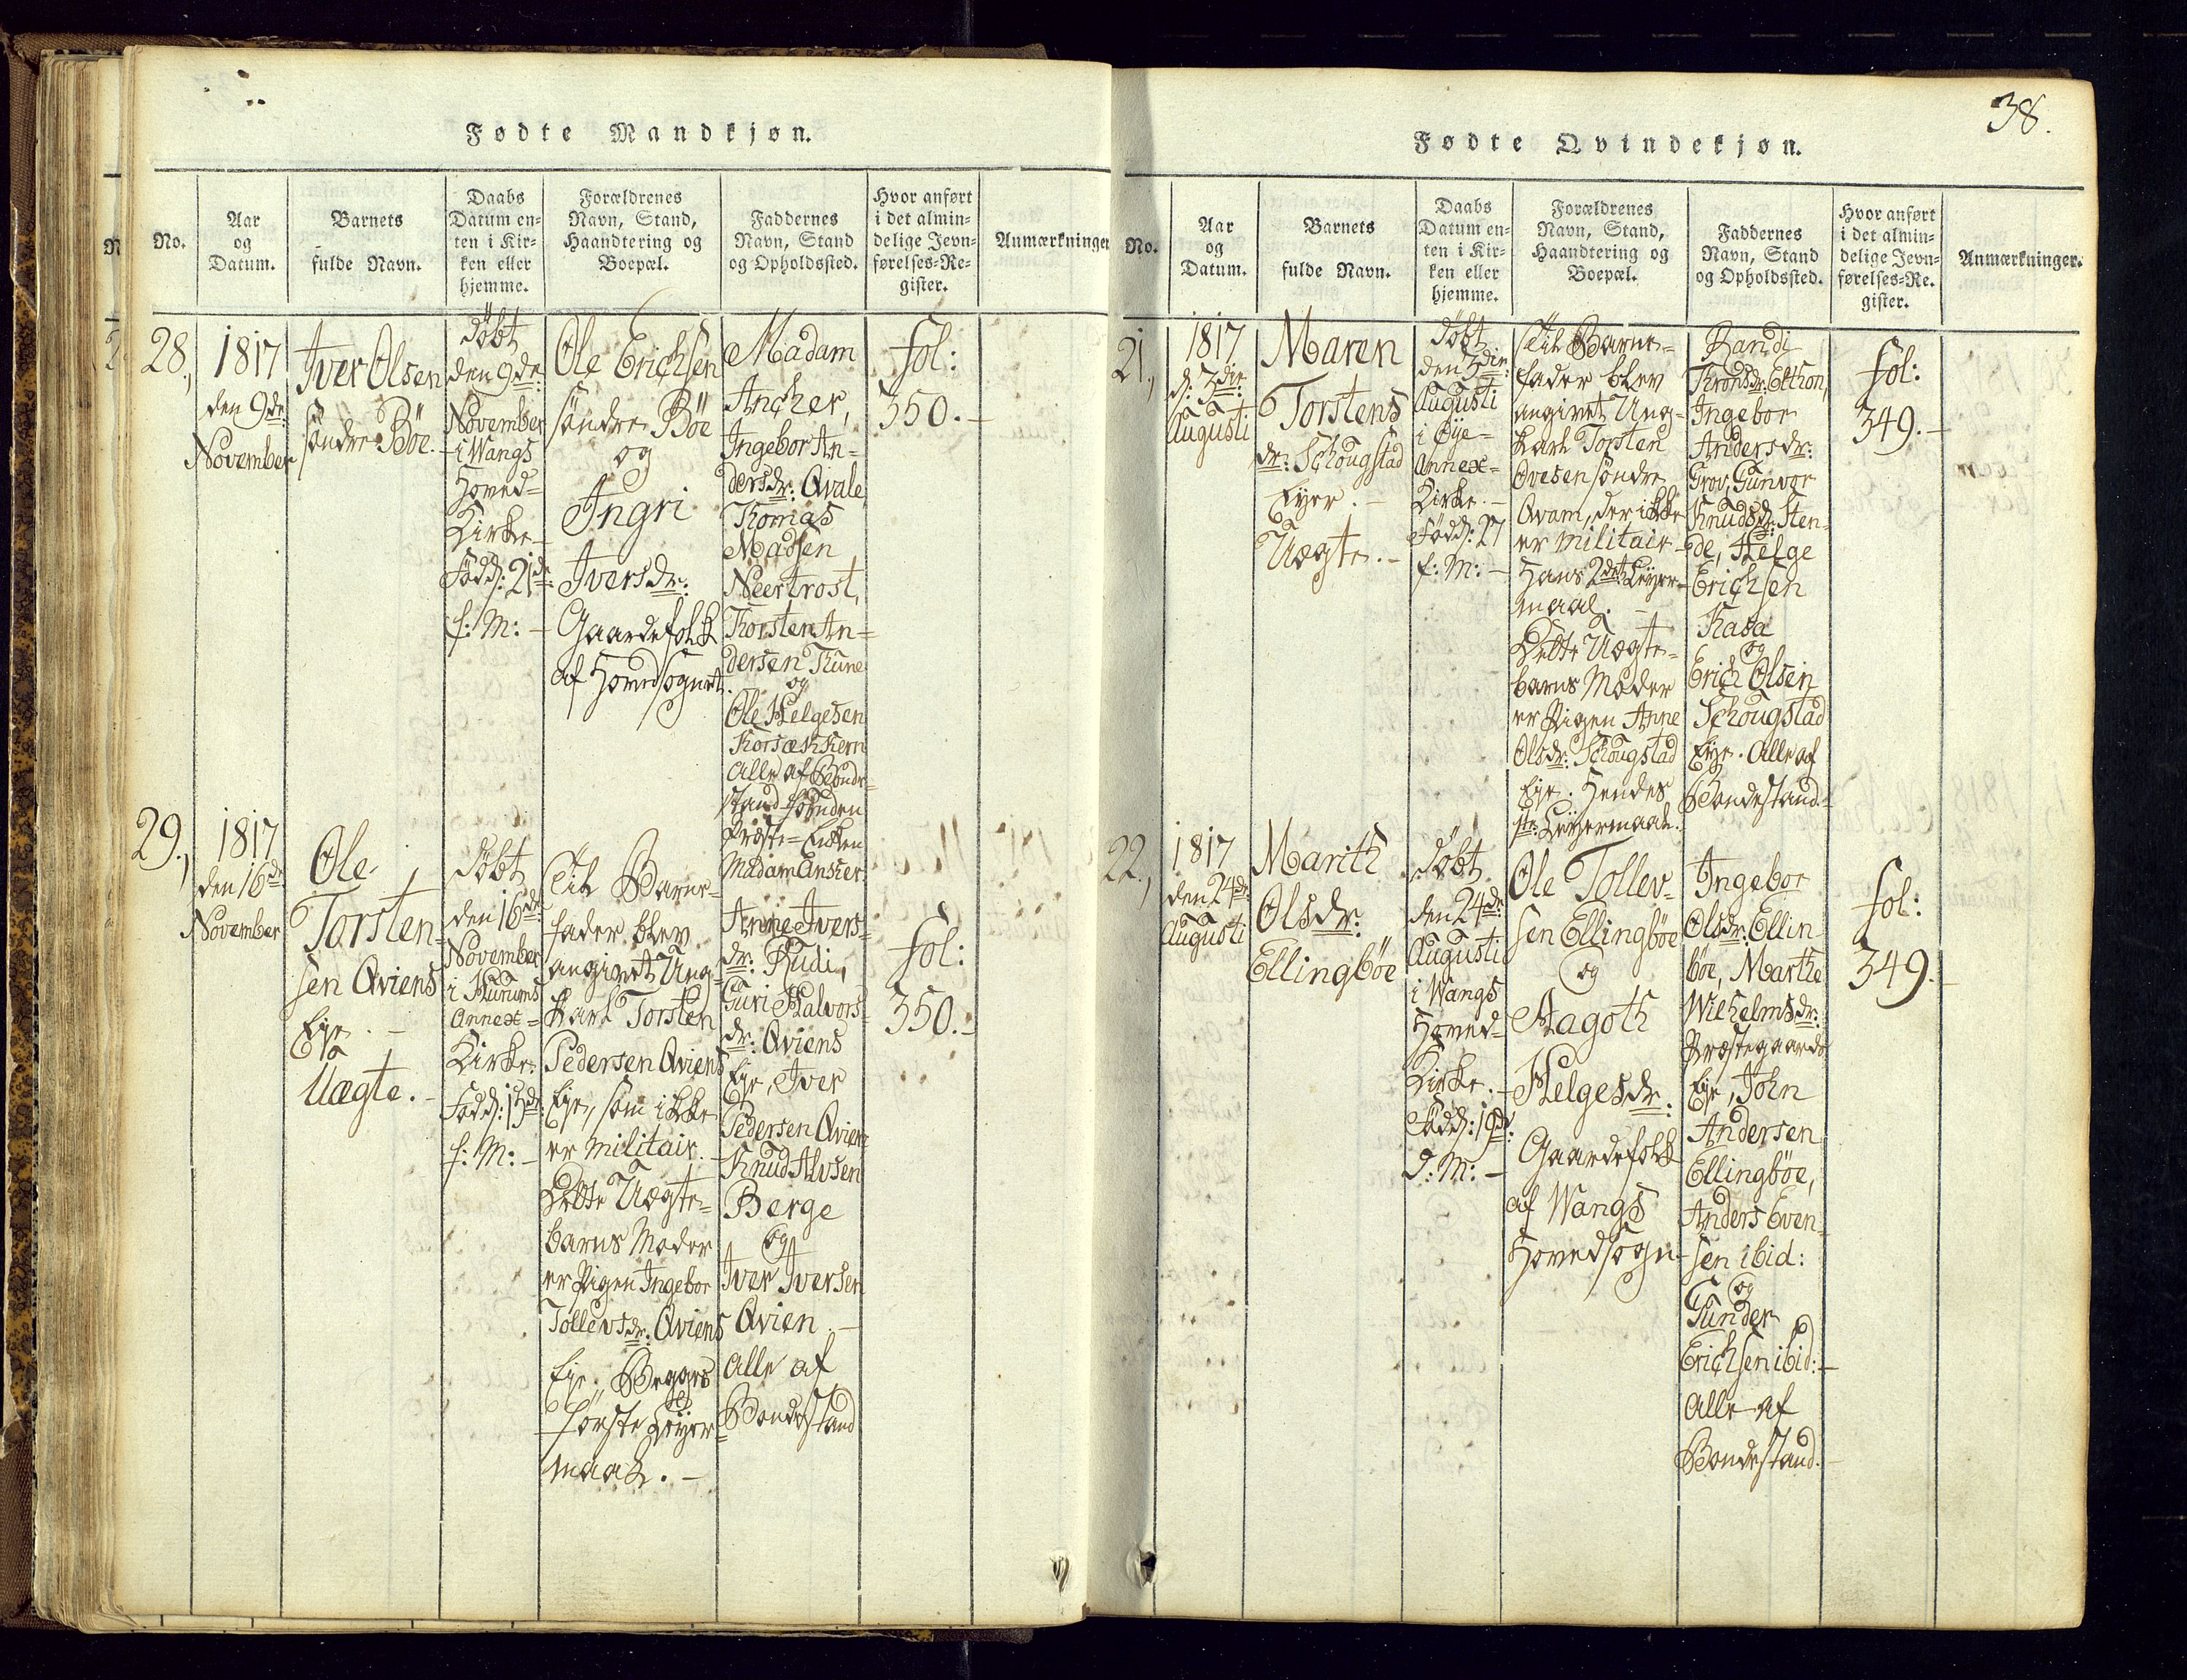 Fødte Mandkjøn.
No.
Aar
og
Datum.
Barnets
fulde Navn.
Daabs
Datum en-
ten i Kir-
ken eller
hjemme.
Forældrenes
Navn, Stand,
Haandtering og
Boepæl.
Faddernes
Navn, Stand
og Opholdssted.
Hvor anført
i det almin-
delige Jevn-
førelses-Re-
gister.
Anmærkninger
28.,
1817
den 9de
November
Iver Olsen
søndre Böe.
döbt
den 9de
November
i Wangs
Hoved=
Kirke
Född: 21de
f: M: -
Ole Erichsen
söndre Böe
og
Ingri
Iversdr:
Gaardefolk
af Hovedsognet.
Madam
Ancher,
Ingebor An=
dersdr: Qvale
Thomas
Madsen
Neertrost,
Thorsten An=
dersen Thune
og
Ole Helgesen
Alle af Bonde-
stand
Præste= Enken
Madam Anker.
fol:
350. -
29.,
1817
den 16de
November
Ole
Torsten=
sen Qviens
Eje. -
Uægte. -
döbt
den 16de
November
i Hurums
Annex=
Kirke.
Född: 13de:
f: M: -
Til Barne=
fader blev
angivet Ung=
karl Torsten
Pedersen Qviens
Eje, som ikke
er militair. -
Dette Uægte=
barns Moder
er Pigen Ingebor
Tollevsdr: Qviens
Eje. Begges
første Leyer=
maal. -
Anne Ivers=
dr: Rudi,
Guri Halvors=
dr: Qviens
Eje, Iver
Pedersen Qviens
Knud Alvsen
Berge
og
Iver Iversen
Qvien. -
Alle af
Bondestand
fol:
350. -
38.
Fødte Qvindekjøn.
No.
Aar
og
Datum.
Barnets
fulde Navn.
Daabs
Datum en-
ten i Kir-
ken eller
hjemme.
Forældrenes
Navn, Stand,
Haandtering og
Boepæl.
Faddernes
Navn, Stand
og Opholdssted.
Hvor anført
i det almin-
delige Jevn-
førelses-Re-
gister.
Anmærkninger.
21.,
1817
d: 3die
Augusti
Maren
Torstens
dr: Schougstad
Ejer. -
Uægte. -
döbt
den 3die
Augusti
i Öye=
Annex=
Kirke. -
Född: 27
f: M: -
Til Barne=
fader blev
angivet Ung=
karl Torsten
Ovesen söndre
Qvam, der ikke
er militair -
Hans 2det Leyer=
maal. -
Dette Uægte=
barns Moder
er Pigen Anne
Olsdr: Schougstad
Eje. Hendes
1ste Leyermaal.
Randi
Thronsdr: Elthon,
Ingebor
Andersdr:
Grov, Gunvor
Knudsdr: Sten=
de, Helge
Erichsen
Kasa
og
Erich Olsen
Schougstad
Eje. Alle af
Bondestand. -
fol:
349. -
22.,
1817
den 24de
Augusti
Marith
Olsdr:
Ellingböe
döbt
den 24de
Augusti
i Wangs
Hoved=
Kirke. -
Född: 19de:
d: M: -
Ole Tollev=
sen Ellingböe
og
Aagoth
Helgesdr:
Gaardefolk
af Wangs
Hovedsogn
Ingebor
Olsdr: Ellin
böe, Marthe
Wilhelmsdr:
Præstegaards
Eje, John
Andersen
Ellingböe,
Anders Even=
sen ibid:
og
Gunder
Erichsen ibid: -
Alle af
Bondestand. -
fol:
349. -